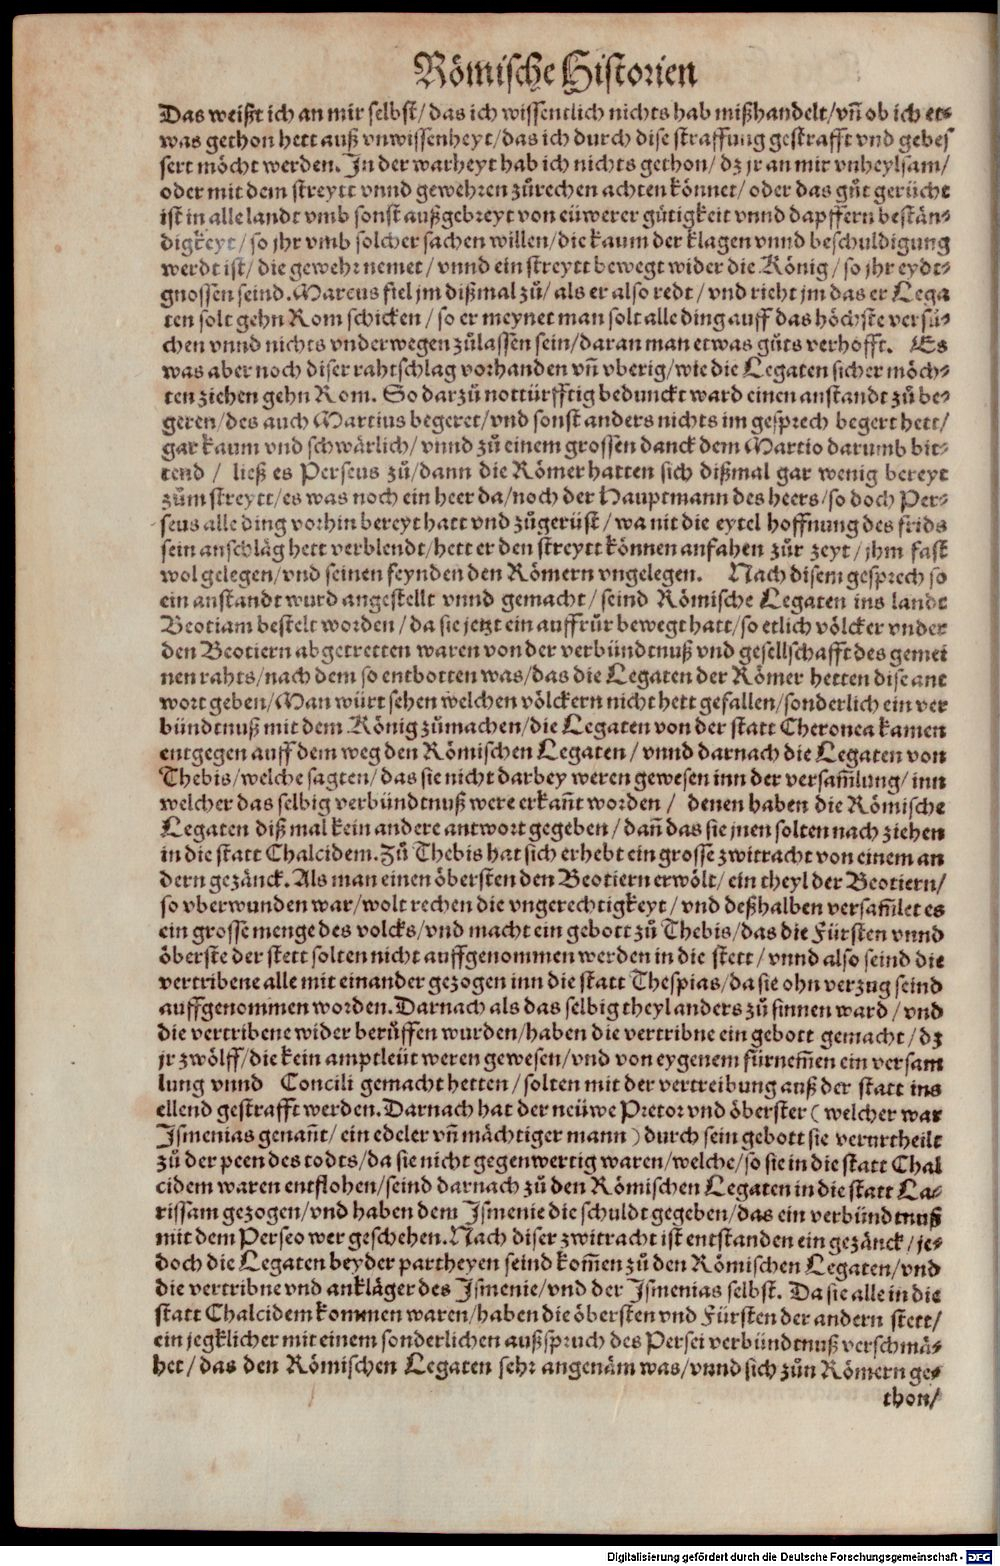 Römische Historien
Das weißt ich an mir selbst/ das ich wissentlich nichts hab mißhandelt/ vñ ob ich et⸗
was gethon hett auß vnwissenheyt/ das ich durch dise straffung gestrafft vnd gebes
sert möcht werden. In der warheyt hab ich nichts gethon/ dz jr an mir vnheylsam/
oder mit dem streytt vnnd gewehren zůrechen achten könnet/ oder das gůt gerücht
ist in alle landt vmb sonst außgebreyt von eüwerer gütigkeit vnnd dapffern bestän⸗
digkeyt/ so jhr vmb solcher sachen willen/ die kaum der klagen vnnd beschuldigung
werdt ist/ die gewehr nemet/ vnnd ein streytt bewegt wider die König/ so jhr eydt⸗
gnossen seind. Marcus fiel jm dißmal zů/ als er also redt/ vnd rieht jm das er Lega
ten solt gehn Rom schicken/ so er meynet man solt alle ding auff das höchste versů⸗
chen vnnd nichts vnderwegen zůlassen sein/ daran man etwas gůts verhofft. Es
was aber noch diser rahtschlag vorhanden vñ vberig/ wie die Legaten sicher möch⸗
ten ziehen gehn Rom. So darzů nottürfftig bedunckt ward einen anstandt zů be⸗
geren/ des auch Martius begeret/ vnd sonst anders nichts im gesprech begert hett/
gar kaum vnd schwärlich/ vnnd zů einem grossen danck dem Martio darumb bit⸗
tend/ ließ es Perseus zů/ dann die Römer hatten sich dißmal gar wenig bereyt
zům streytt/ es was noch ein heer da/ noch der Hauptmann des heers/ so doch Per⸗
seus alle ding vorhin bereyt hatt vnd zůgerüst/ wa nit die eytel hoffnung des frids
sein anschläg hett verblendt/ hett er den streytt können anfahen zůr zeyt/ jhm fast
wol gelegen/ vnd seinen feynden den Römern vngelegen. Nach disem gesprech so
ein anstandt wurd angestellt vnnd gemacht/ seind Römische Legaten ins landt
Beotiam bestelt worden/ da sie jetzt ein auffrůr bewegt hatt/ so etlich völcker vnder
den Beotiern abgetretten waren von der verbündtnuß vnd gesellschafft des gemei
nen rahts/ nach dem so entbotten was/ das die Legaten der Römer hetten dise ant
wort geben/ Man würt sehen welchen völckern nicht hett gefallen/ sonderlich ein ver
bündtnuß mit dem König zůmachen/ die Legaten von der statt Cheronea kamen
entgegen auff dem weg den Römischen Legaten/ vnnd darnach die Legaten von
Thebis/ welche sagten/ das sie nicht darbey weren gewesen inn der versam̃lung/ inn
welcher das selbig verbündtnuß were erkañt worden/ denen haben die Römische
Legaten diß mal kein andere antwort gegeben/ dañ das sie jnen solten nach ziehen
in die statt Chalcidem. Zů Thebis hat sich erhebt ein grosse zwitracht von einem an
dern gezänck. Als man einen öbersten den Beotiern erwölt/ ein theyl der Beotiern/
so vberwunden war/ wolt rechen die vngerechtigkeyt/ vnd deßhalben versam̃let es
ein grosse menge des volcks/ vnd macht ein gebott zů Thebis/ das die Fürsten vnnd
öberste der stett solten nicht auffgenommen werden in die stett/ vnnd also seind die
vertribene alle mit einander gezogen inn die statt Thespias/ da sie ohn verzug seind
auffgenommen worden. Darnach als das selbig theyl anders zů sinnen ward/ vnd
die vertribene wider berůffen wurden/ haben die vertribne ein gebott gemacht/ dz
jr zwölff/ die kein amptleüt weren gewesen/ vnd von eygenem fürnem̃en ein versam
lung vnnd Concili gemacht hetten/ solten mit der vertreibung auß der statt ins
ellend gestrafft werden. Darnach hat der neüwe Pretor vnd öberster (welcher war
Ismenias genañt/ ein edeler vñ mächtiger mann) durch sein gebott sie verurtheilt
zů der peen des todts/ da sie nicht gegenwertig waren/ welche/ so sie in die statt Chal
cidem waren entflohen/ seind darnach zů den Römischen Legaten in die statt La⸗
rissam gezogen/ vnd haben dem Ismenie die schuldt gegeben/ das ein verbündtnuß
mit dem Perseo wer geschehen. Nach diser zwitracht ist entstanden ein gezänck/ je⸗
doch die Legaten beyder partheyen seind kom̃en zů den Römischen Legaten/ vnd
die vertribne vnd ankläger des Ismenie/ vnd der Ismenias selbst. Da sie alle in die
statt Chalcidem kommen waren/ haben die öbersten vnd Fürsten der andern stett/
ein jegklicher mit einem sonderlichen außspruch des Persei verbündtnuß verschmä⸗
het/ das den Römischen Legaten sehr angenäm was/ vnnd sich zůn Römern ge⸗
thon/
Digitalisierung gefördert durch die Deutsche Forschungsgemeinschaft - DFG